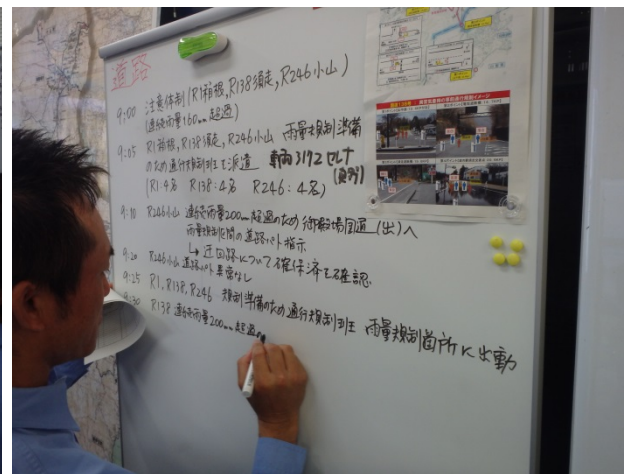 道路
9:00 注意体制(R1箱根,R138須走,R246小山)
(連続雨量160mm超過)
9:05 R1箱根,R138須走,R246小山 雨量規制準備
のため通行規制班を派遣 車両3192セルナ
(R1:4名 R138:4名 R246:4名)
9:10 R246小山 連続雨量200mm超過のため 御殿場国道(出)へ
雨量規制区間の道路パト指示
↳ 迂回路について確保済を確認
9:20 R246小山 道路パト異常なし
9:25 R1,R138,R246 規制準備のため通行規制班 雨量規制箇所に出動
9:30 R138 連続雨量200mm超過の